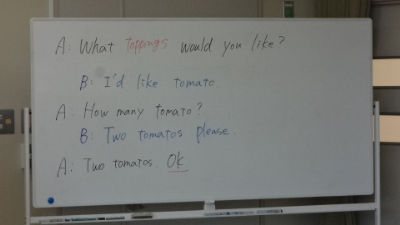 A: What toppings would you like?
B: I'd like tomato
A: How many tomato?
B: Two tomatos please.
A: Two tomatos. Ok